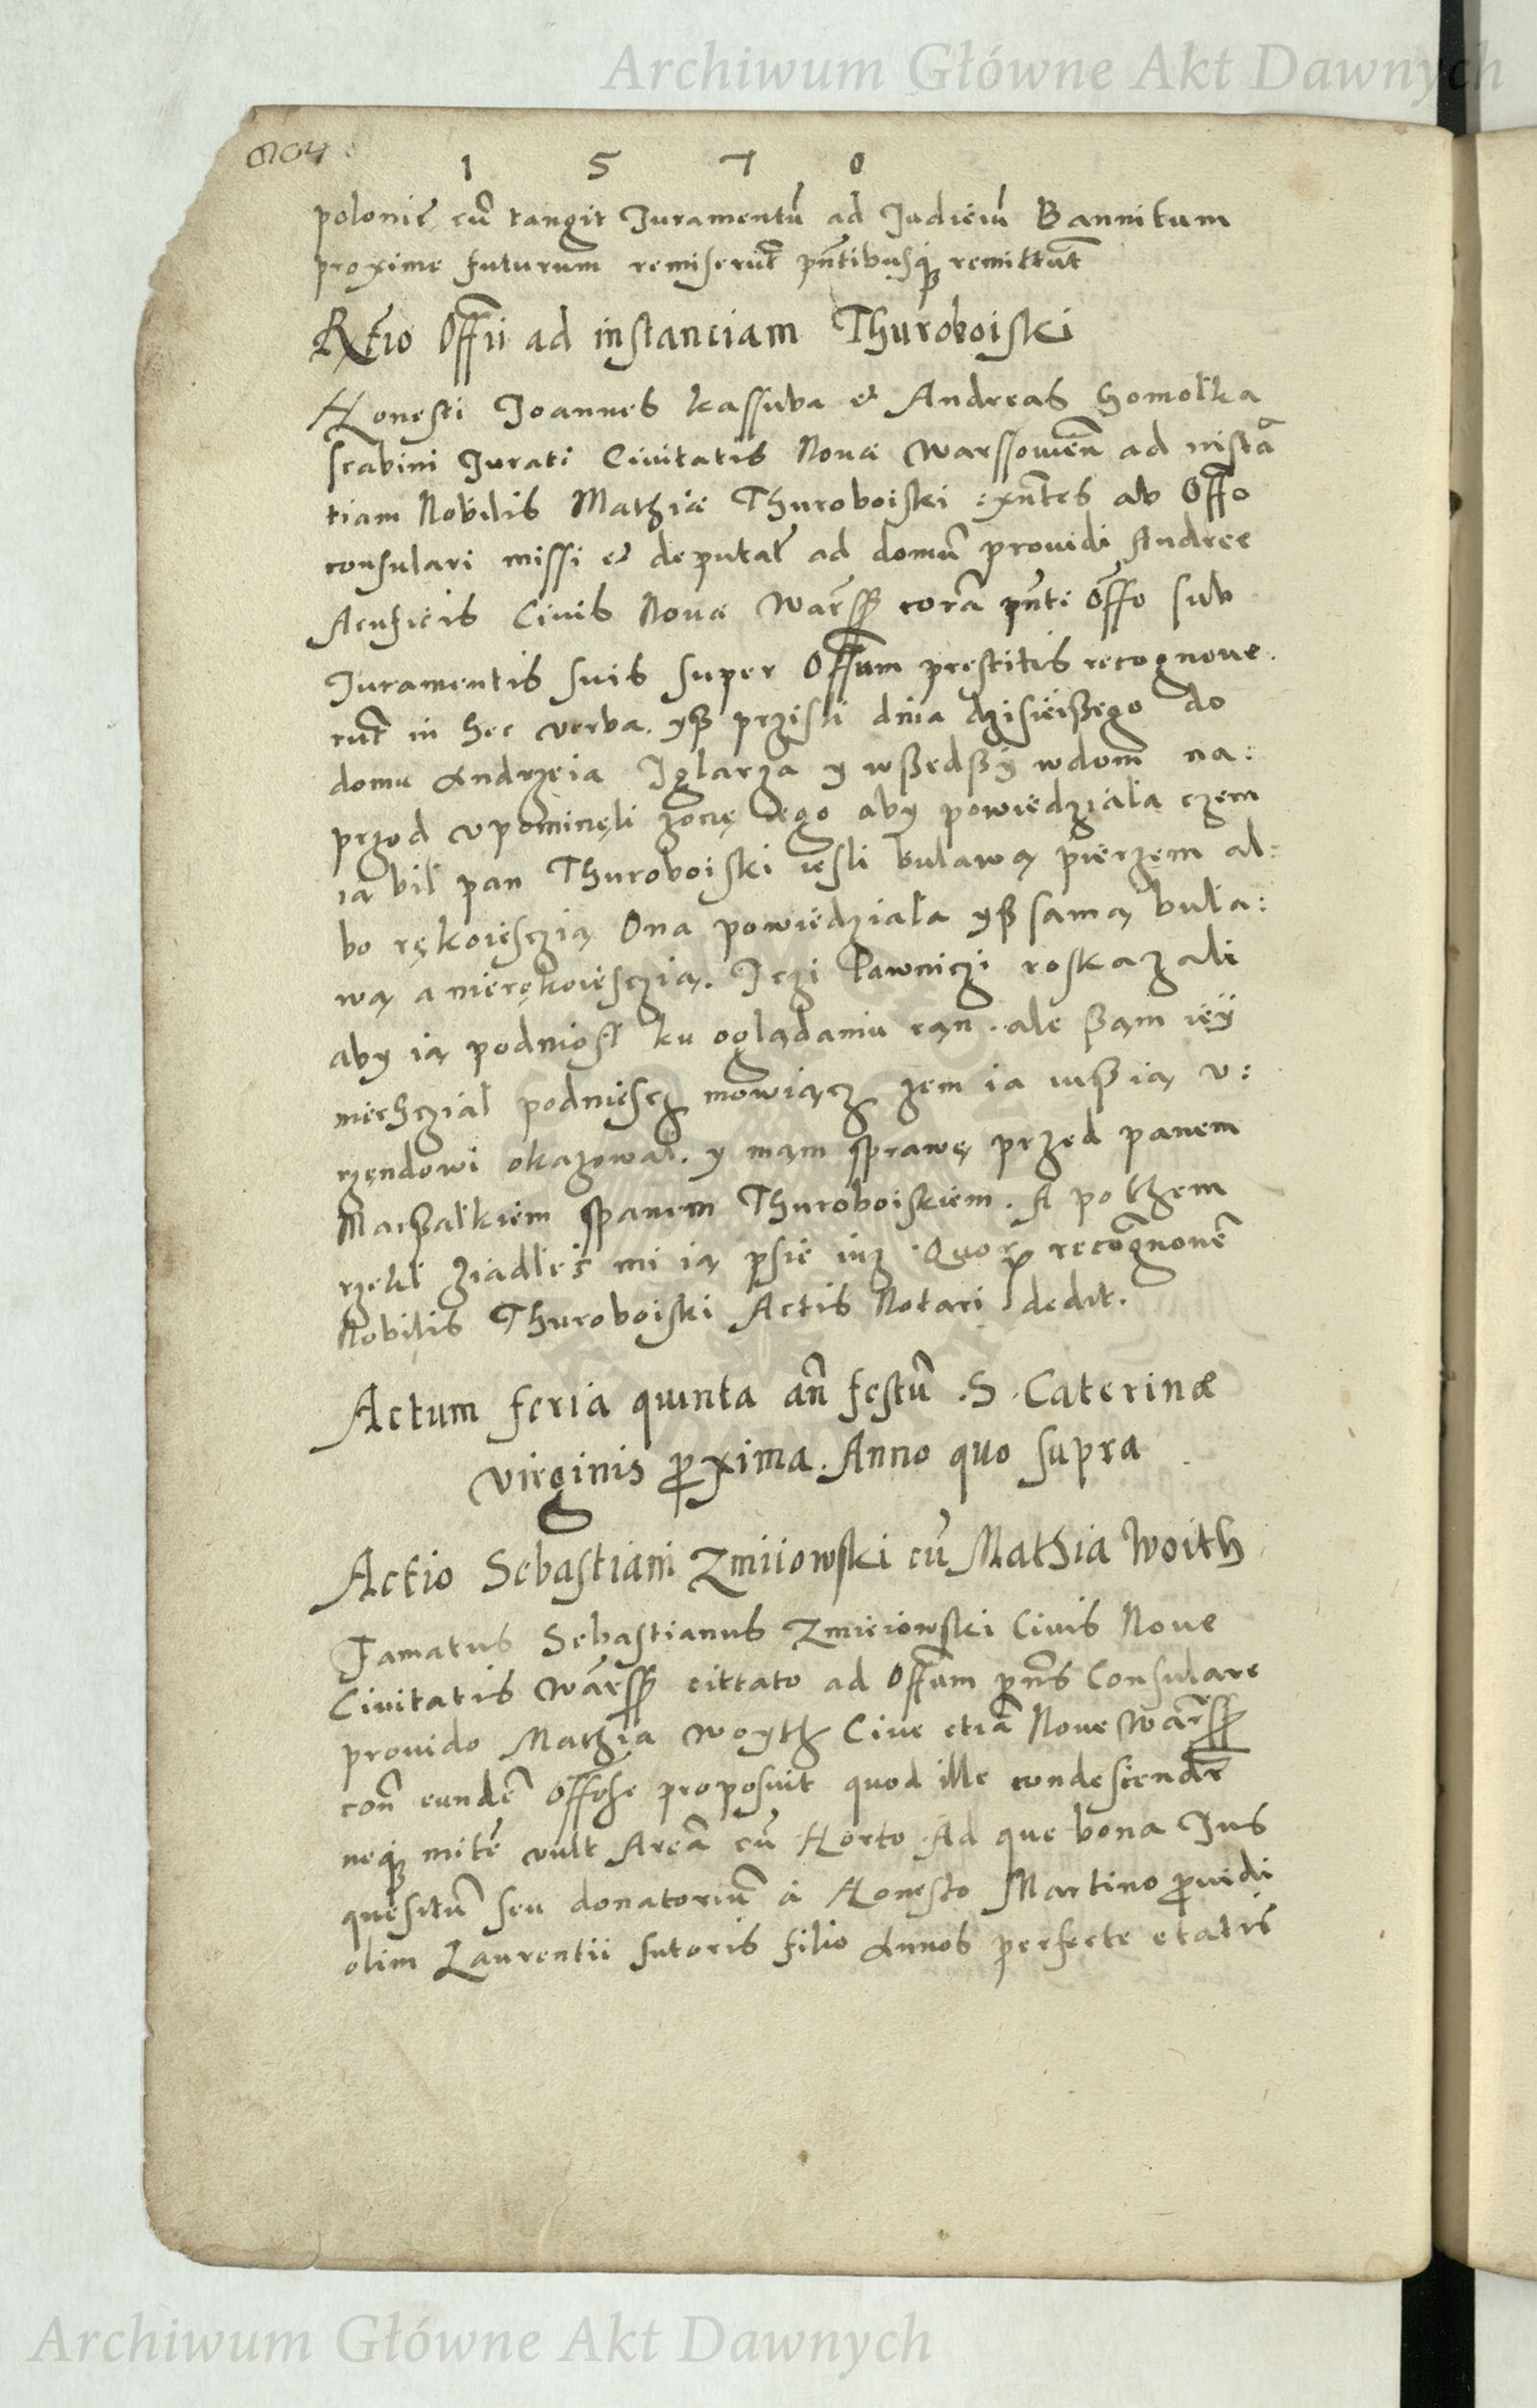 Archiwum Główne Akt Dawnych
1 5 7 0
polonie cū tangit Iuramentū ad Iudiciū Bannitum
proxime futurum remiserūt pn̄tibusq₃ remittūt
Rtio Offii ad instanciam Thuroboiski
Honesti Joannes Kassuba et Andreas Homolka
scabini Iurati Ciuitatis Noue Warssouien̄ ad instā
tiam Nobilis Mathiæ Thuroboiski exn̄tes ab Offo
consulari missi et deputat̄ ad domū prouidi Andree
Acuficis Ciuis Noue Warss̄ corā pn̄ti Offo sub
Iuramentis suis super Offium prestitis recognoue.
rūt in hec verba. yß przisli dnia dzisieißego do
domu Andrzeia Iglarza y wßedßÿ wdom na:
przod vpominęli zonę iego aby powiedziała czem
ią bił pan Thuroboiski iesli buławą pierzem al:
bo rękoiesczią Ona powiedziała yß samą buła:
wą a nierękoiesczią. Iczi Ławniczi roskazali
aby ią podniosł ku oglądaniu ran. ale ßąm iëÿ
niechcział podniescz mowiącz zem ia iußią v:
rzęndowi okazował. y mąm sprawę przed panem
Marßałkiem spanem Thuroboiskiem. A pothem
rzekł ziadłeś mi ią psie iuz. Quorꝝ recognonē
Nobilis Thuroboiski Actis Notari dedit.
Actum feria quinta an̄ festū .S. Caterinæ
virginis proxima. Anno quo supra
Actio Sebastiani Zmiiowski cū Mathia Woith
Famatus Sebastianus Zmieiowski Ciuis Noue
Ciuitatis Warss̄ cittato ad Offium pn̄s Consulare
prouido Mathia Woyth Ciue etiā Noue Warss̄
con̄ eundē Offose proposuit quod ille condescendr̄e
neq₃ mitē vult Areā cū Horto. Ad que bona Ius
quesitū seu donatoriū à Honesto Martino prouidi
olim Laurentii sutoris filio Annos perfecte etatis
Archiwum Główne Akt Dawnych